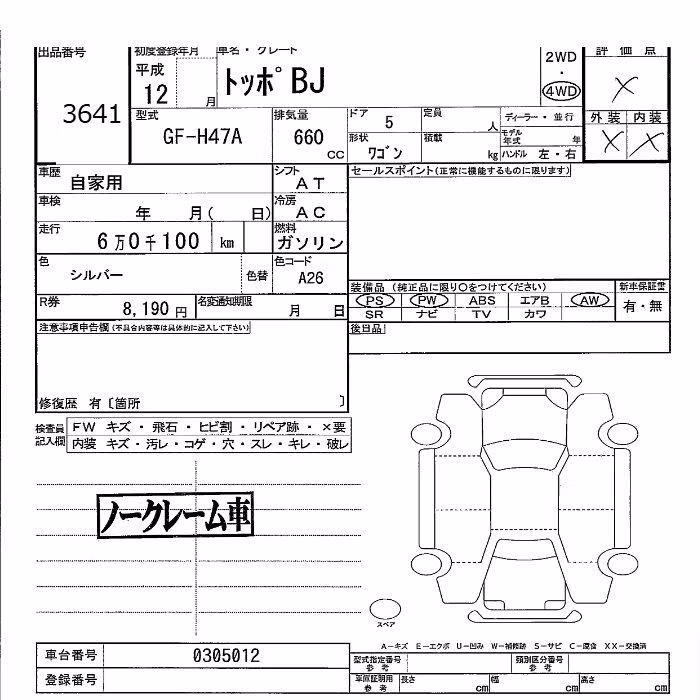 出品番号 初度登録年月 車名・グレード 2WD 評価点
平成 トッポBJ ・ ×
12 月 4WD
3641 型式 排気量 ドア 5 定員 人 ディーラー・並行 外装 内装
GF-H47A 660 cc 形状 ワゴン 積載 kg モデル年式 年 × ×
ハンドル 左・右
車歴 自家用 シフト AT セールスポイント(正常に機能するものに限ります)
車検 年 月( 日) 冷房 AC
走行 6万0千100 km 燃料 ガソリン
色 シルバー 色替 色コード A26
装備品 (純正品に限り○をつけてください) 新車保証書
R券 8,190円 名変通知期限 月 日 PS PW ABS エアB AW 有・無
SR ナビ TV カワ
注意事項申告欄(不具合内容等は具体的に記入して下さい) 後日品
修復歴 有〔箇所 〕
検査員記入欄 FW キズ・飛石・ヒビ割・リペア跡・×要
内装 キズ・汚レ・コゲ・穴・スレ・キレ・破レ
ノークレーム車
スペア
A−キズ E−エクボ U−凹み W−補修跡 S−サビ C−腐食 XX−交換済
車台番号 0305012 型式指定番号 参考 類別区分番号 参考
登録番号 車庫証明用 参考 長さ cm 幅 cm 高さ cm